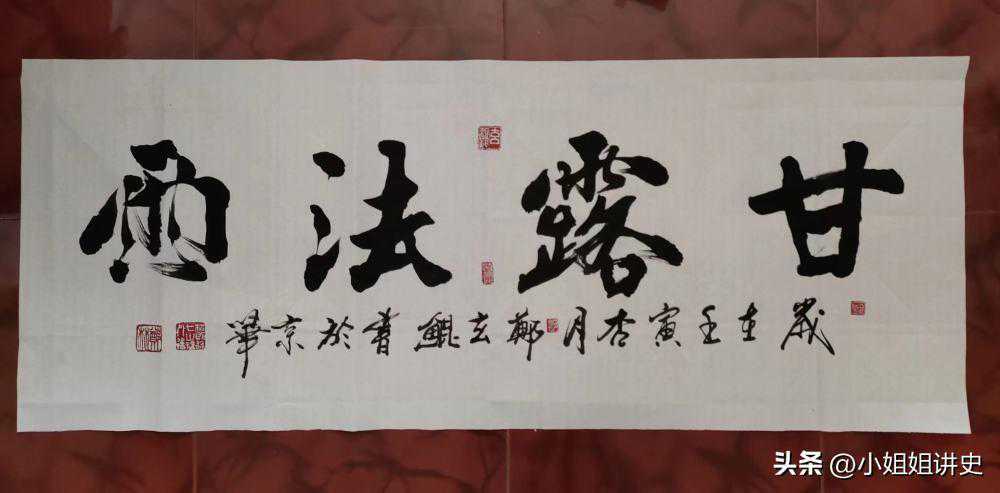 甘露法雨
歲在壬寅杏月鄭玄鯤書於京華
头条 @小姐姐讲史